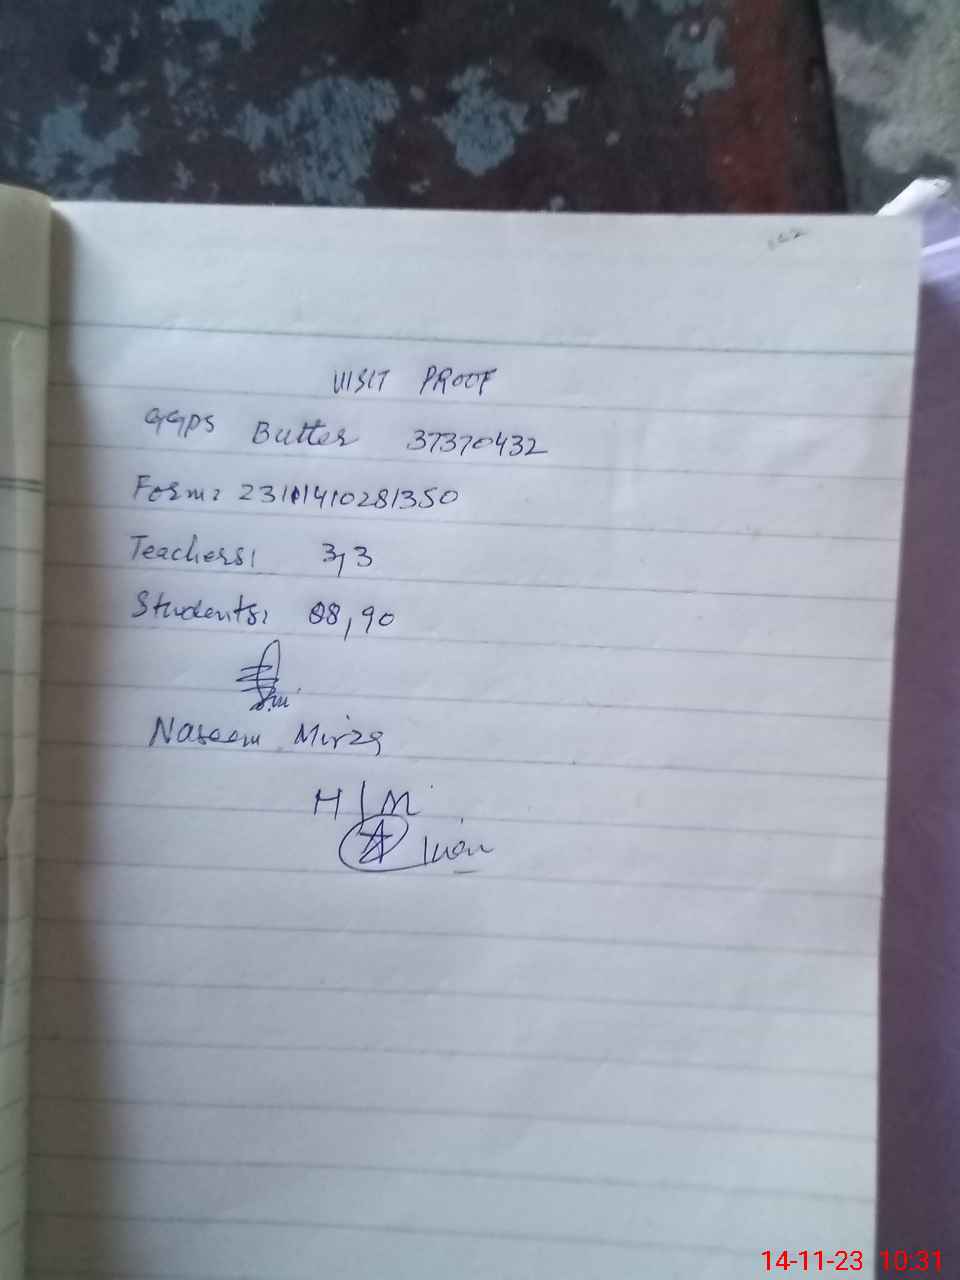 VISIT PROOF
GGPS Butter 37370432
Form: 23111410281350
Teachers: 3,3
Students: 88,90
Naseem Mirza
H/M
14-11-23 10:31